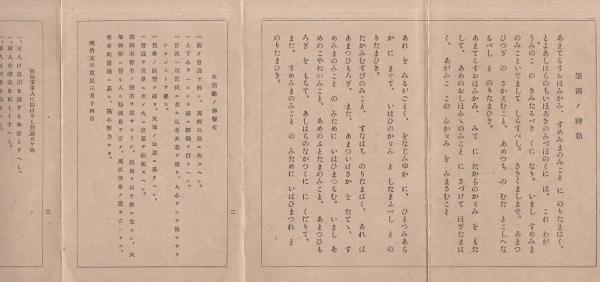 肇國ノ神勅
あまてらすおほみかみ、すめみまのみこと に のりたまはく、
とよあしはらのちいほあきのみづほのくに は、これ わが
うみのこ の きみたるべき くに なり。いまし すめみま
のみこと いでまして しらせ。さきくませ。あまつ
ひつぎ の さかえまさむこと、あめつち の むた とこしへな
るべし と のりたまひき。
あまてらすおほみかみ、みて に たからのかがみ を もた
して、あめのおしほみゝのみこと に さづけて ほぎたまは
く、あがみこ この かゞみ を みまさむこと
あれ を みるがごとく、をなじみゆか に、ひとつみあら
か に ませて、いはひのかゞみ と したまふべし と の
りたまひき。
たかみむすびのみこと、すなはち のりたまはく、あれ は
あまつひもろぎ、また あまついはさか を たてゝ、す
めみまのみこと の ために いはひまつらむ。いまし あ
めのこやねのみこと、あめのふとたまのみこと、あまつひも
ろぎ を もちて、あしはらのなかつくに に くだりて、
また、すめみまのみこと の ために いはひまつれ と
のりたまひき。
二
五箇條ノ御誓文
一、廣ク會議ヲ興シ、萬機公論ニ決スヘシ。
一、上下心ヲ一ニシテ、盛ニ經綸ヲ行フヘシ。
一、官武一途庶民ニ至ル迄、各其志ヲ遂ケ、人心ヲシテ倦マサラ
シメンコトヲ要ス。
一、舊來ノ陋習ヲ破リ、天地ノ公道ニ基クヘシ。
一、智識ヲ世界ニ求メ、大ニ皇基ヲ振起スヘシ。
我國未曾有ノ變革ヲ爲サントシ、朕躬ヲ以テ衆ニ先ンシ、天
地神明ニ誓ヒ、大ニ斯國是ヲ定メ、萬民保全ノ道ヲ立ントス。
衆亦此旨趣ニ基キ、協心努力セヨ。
明治元年戊辰三月十四日
三
陸海軍軍人に賜はりし勅諭五ケ條
一、軍人は忠節を盡すを本分とすへし。
一、軍人は禮儀を正しくすへし。